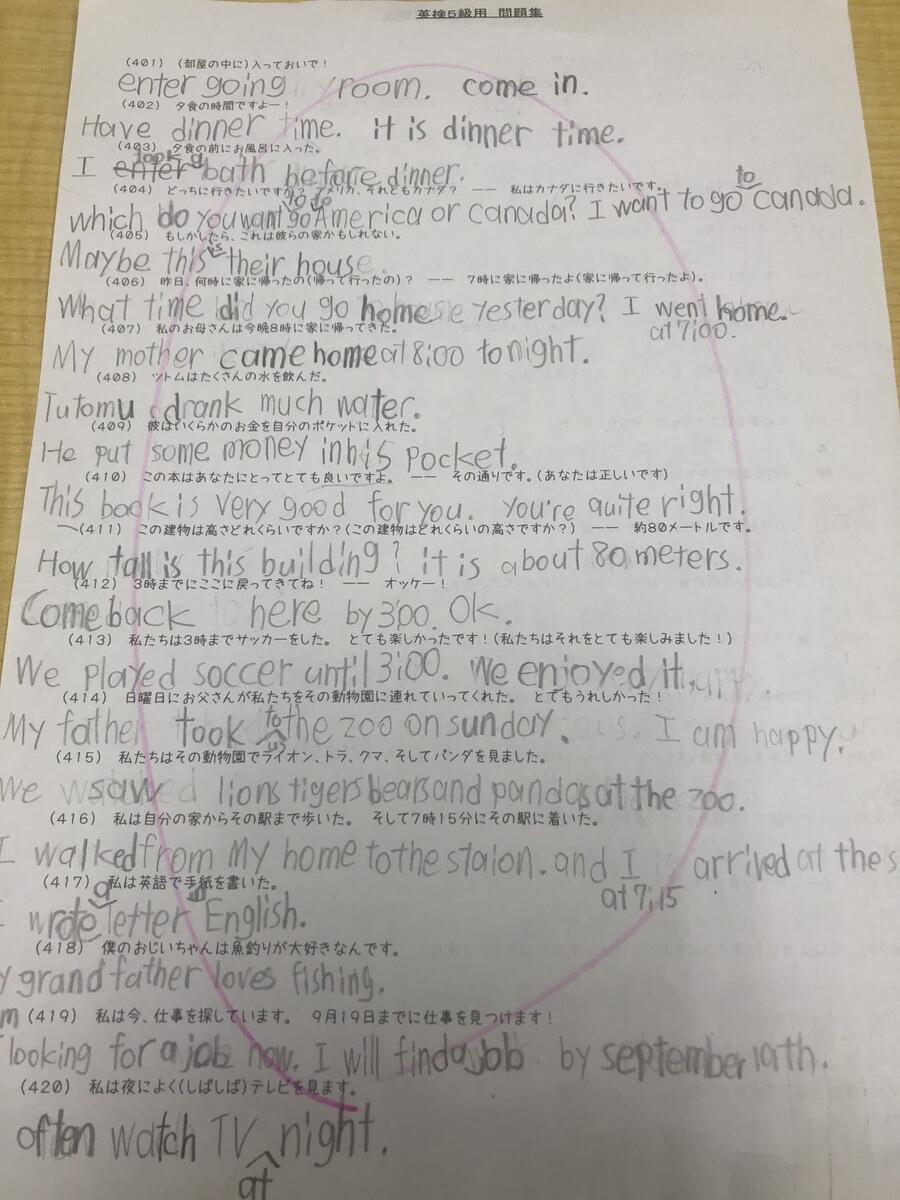 英検５級用 問題集
(401) (部屋の中に)入っておいで！
enter going room. come in.
(402) 夕食の時間ですよー！
Have dinner time. it is dinner time.
(403) 夕食の前にお風呂に入った。
took a
I enter bath before dinner.
(404) どっちに行きたいですか？ アメリカ、それともカナダ？ ―― 私はカナダに行きたいです。
to to
to
which do you want go America or canada? I want to go canada.
(405) もしかしたら、これは彼らの家かもしれない。
is
Maybe this their house.
(406) 昨日、何時に家に帰ったの(帰って行ったの)？ ―― 7時に家に帰ったよ(家に帰って行ったよ)。
What time did you go home yesterday? I went home.
at 7:00.
(407) 私のお母さんは今晩8時に家に帰ってきた。
My mother came home at 8:00 tonight.
(408) ツトムはたくさんの水を飲んだ。
Tutomu drank much water.
(409) 彼はいくらかのお金を自分のポケットに入れた。
He put some money in his pocket.
(410) この本はあなたにとってとても良いですよ。 ―― その通りです。(あなたは正しいです)
This book is very good for you. You're quite right.
(411) この建物は高さどれくらいですか？(この建物はどれくらいの高さですか？) ―― 約80メートルです。
How tall is this building? it is about 80 meters.
(412) 3時までにここに戻ってきてね！ ―― オッケー！
Come back here by 3:00. Ok.
(413) 私たちは3時までサッカーをした。 とても楽しかったです！(私たちはそれをとても楽しみました！)
We played soccer until 3:00. We enjoyed it.
(414) 日曜日にお父さんが私たちをその動物園に連れていってくれた。 とてもうれしかった！
to
My father took the zoo on sunday. I am happy.
us
(415) 私たちはその動物園でライオン、トラ、クマ、そしてパンダを見ました。
We saw lions tigers bears and pandas at the zoo.
(416) 私は自分の家からその駅まで歩いた。 そして7時15分にその駅に着いた。
I walked from My home to the staion. and I arrived at the s
at 7:15
(417) 私は英語で手紙を書いた。
a in
I wrote letter English.
(418) 僕のおじいちゃんは魚釣りが大好きなんです。
y grand father loves fishing.
(419) 私は今、仕事を探しています。 9月19日までに仕事を見つけます！
m
looking for a job now. I will find a job by september 19th.
(420) 私は夜によく(しばしば)テレビを見ます。
often watch TV night.
at